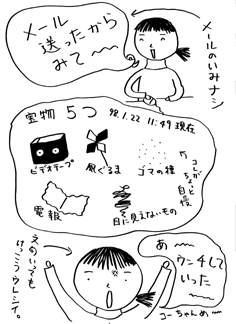 メール
送ったから
みて〜
メールのいみナシ
実物 5つ 98.1.22 11:49 現在
ビデオテープ
風ぐるま
ゴマの種
コレがちょっと自慢
電報
目に見えないもの
あ〜
ウンチして
いった〜
コーちゃんめ〜
けっこうウレシイ。